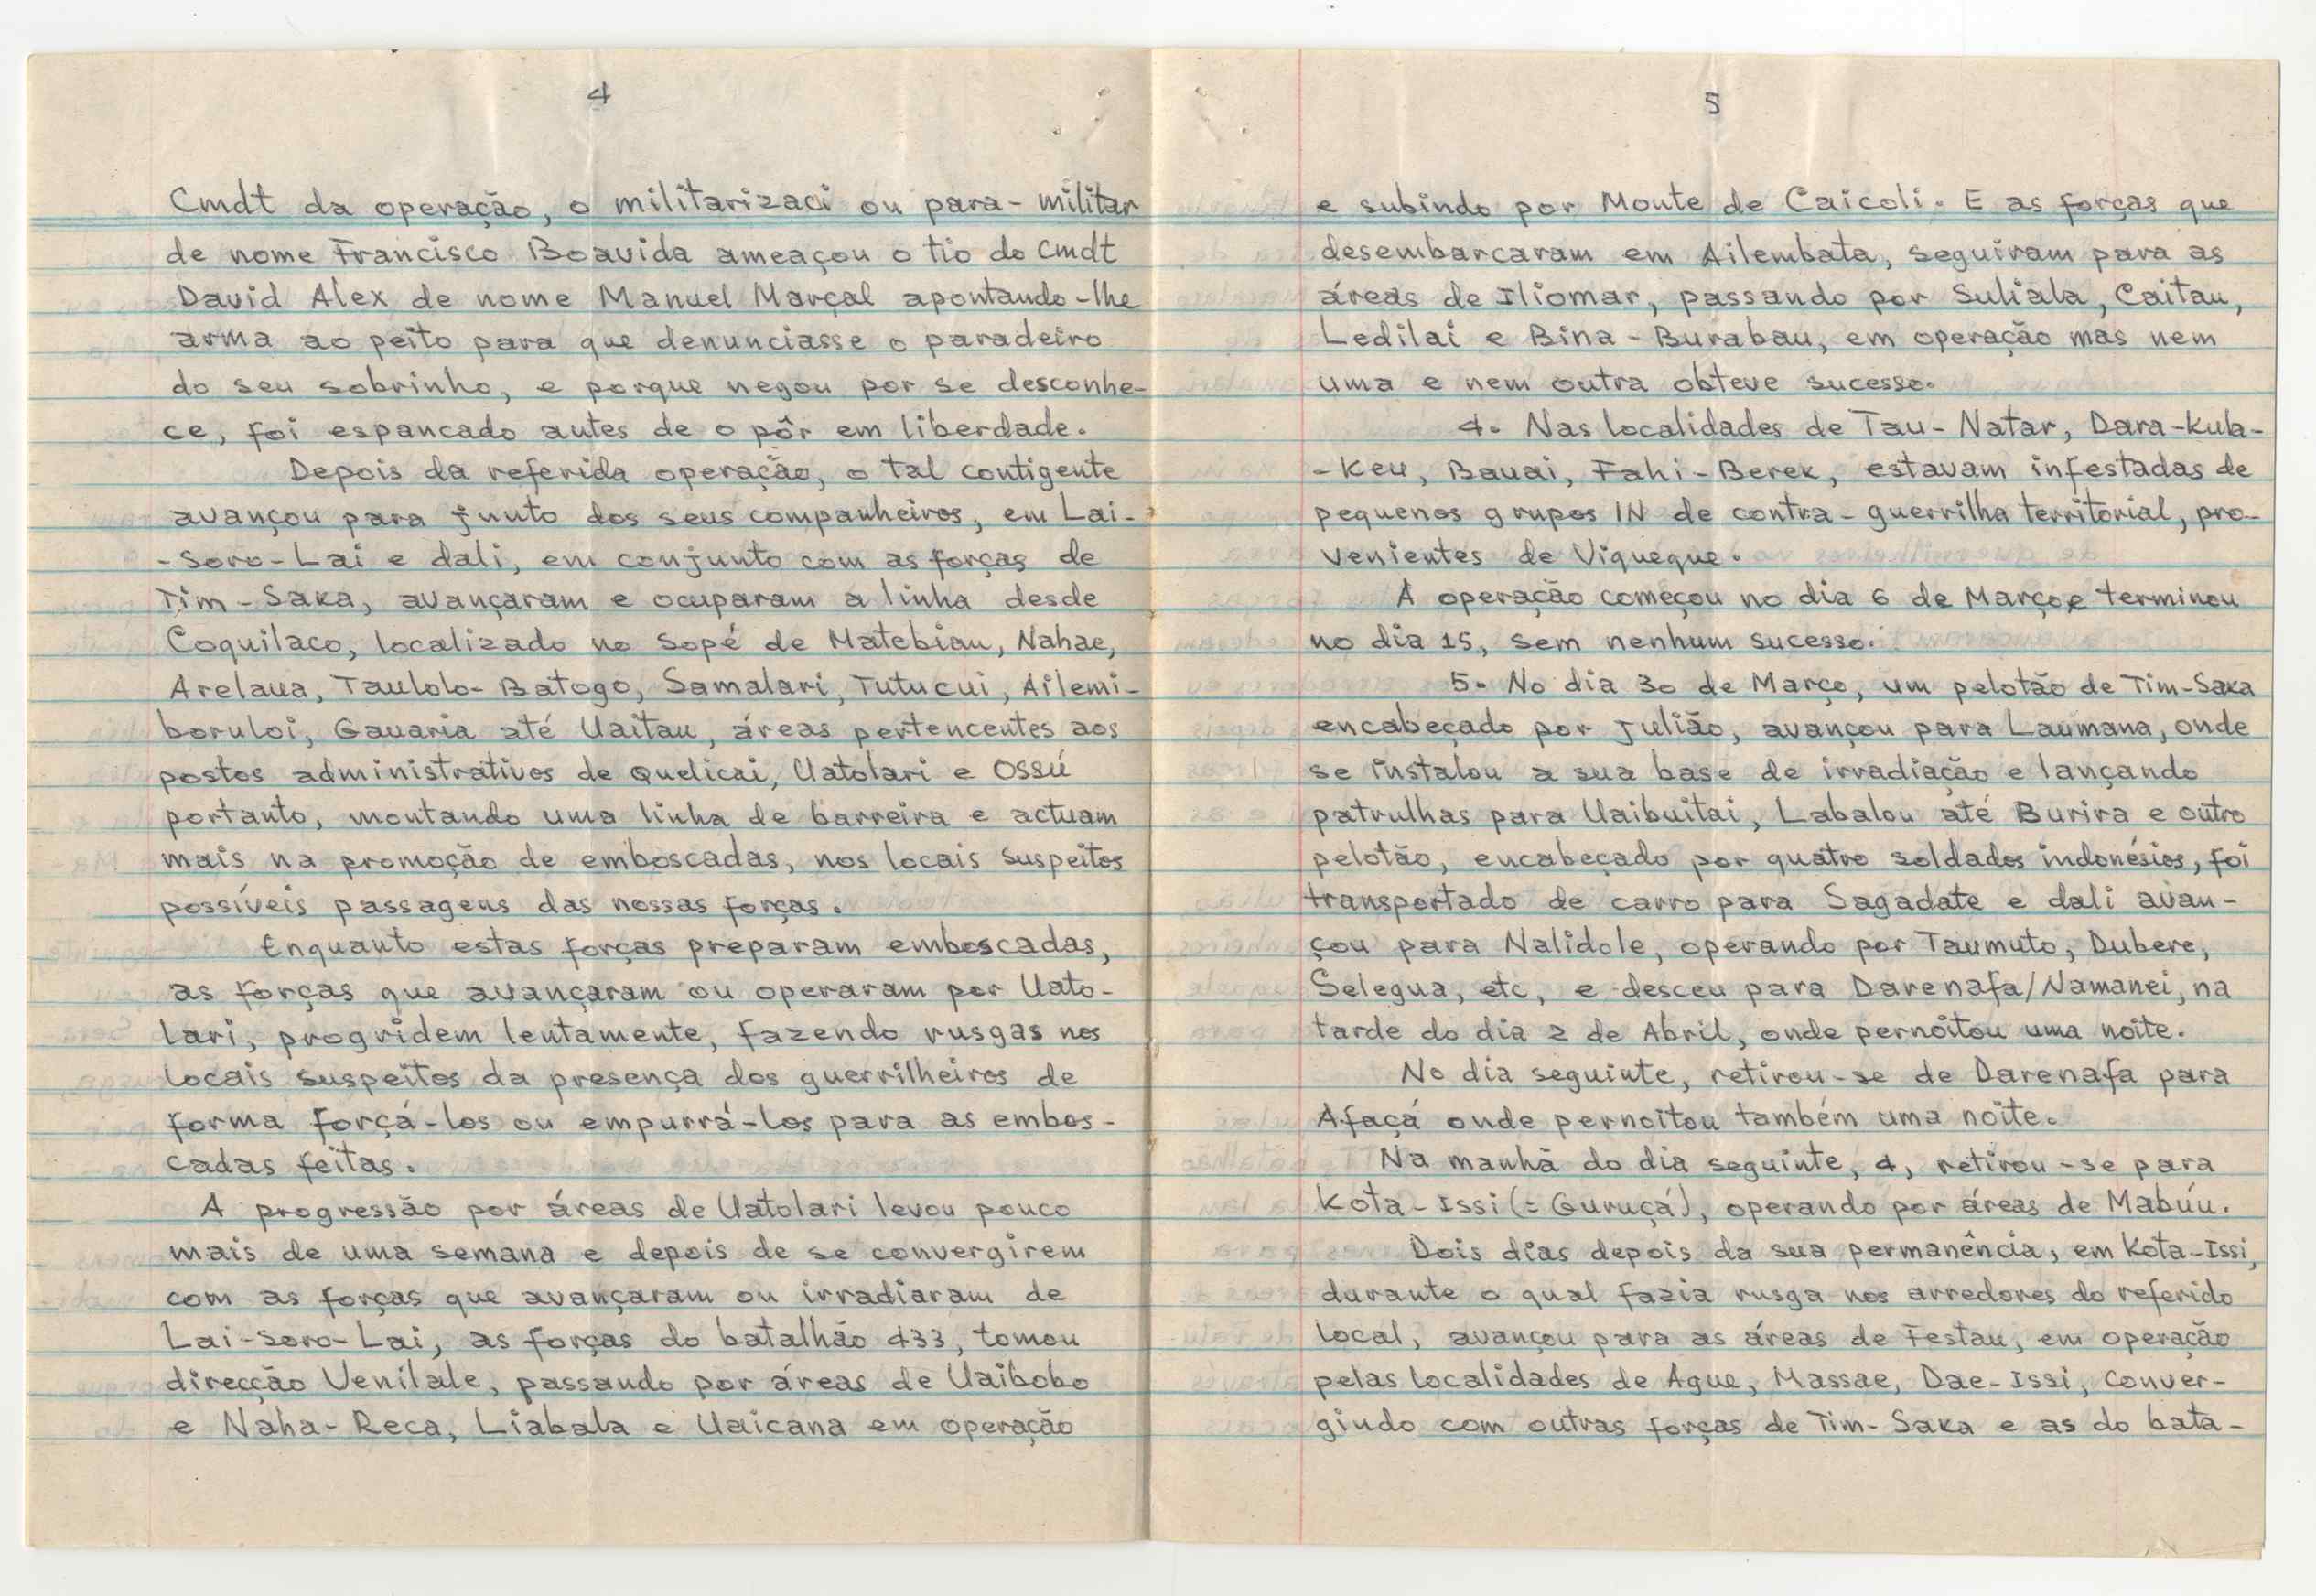 4
Cmdt da operação, o militarizaci ou para-militar
de nome Francisco Boavida ameaçou o tio do Cmdt
David Alex de nome Manuel Marçal apontando-lhe
arma ao peito para que denunciasse o paradeiro
do seu sobrinho, e porque negou por se desconhe-
ce, foi espancado antes de o pôr em liberdade.
Depois da referida operação, o tal contigente
avançou para junto dos seus companheiros, em Lai-
-Soro-Lai e dali, em conjunto com as forças de
Tim-Saka, avançaram e ocuparam a linha desde
Coquilaco, localizado no sopé de Matebian, Nahae,
Arelaua, Taulolo-Batogo, Samalari, Tutucui, Ailemi-
boruloi, Gauaria até Uaitau, áreas pertencentes aos
postos administrativos de Quelicai, Uatolari e Ossú
portanto, montando uma linha de barreira e actuam
mais na promoção de emboscadas, nos locais suspeitos
possíveis passagens das nossas forças.
Enquanto estas forças preparam emboscadas,
as forças que avançaram ou operaram por Uato-
lari, progridem lentamente, fazendo rusgas nos
locais suspeitos da presença dos guerrilheiros de
forma forçá-los ou empurrá-los para as embos-
cadas feitas.
A progressão por áreas de Uatolari levou pouco
mais de uma semana e depois de se convergirem
com as forças que avançaram ou irradiaram de
Lai-Soro-Lai, as forças do batalhão 433, tomou
direcção Venilale, passando por áreas de Uaibobo
e Naha-Reca, Liabala e Uaicana em operação
5
e subindo por Monte de Caicoli. E as forças que
desembarcaram em Ailembata, seguiram para as
áreas de Iliomar, passando por Suliala, Caitau,
Ledilai e Bina-Burabau, em operação mas nem
uma e nem outra obteve sucesso.
4. Nas localidades de Tau-Natar, Dara-Kula-
-Keu, Bauai, Fahi-Berek, estavam infestadas de
pequenos grupos IN de contra-guerrilha territorial, pro-
venientes de Viqueque.
A operação começou no dia 6 de Março e terminou
no dia 15, sem nenhum sucesso.
5. No dia 30 de Março, um pelotão de Tim-Saka
encabeçado por Julião, avançou para Laumana, onde
se instalou a sua base de irradiação e lançando
patrulhas para Uaibuitai, Labalou até Burira e outro
pelotão, encabeçado por quatro soldados indonésios, foi
transportado de carro para Sagadate e dali avan-
çou para Nalidole, operando por Taumuto, Dubere,
Selegua, etc, e desceu para Darenafa/Namanei, na
tarde do dia 2 de Abril, onde pernoitou uma noite.
No dia seguinte, retirou-se de Darenafa para
Afaçá onde pernoitou também uma noite.
Na manhã do dia seguinte, 4, retirou-se para
Kota-Issi (= Guruçá), operando por áreas de Mabúu.
Dois dias depois da sua permanência, em Kota-Issi,
durante o qual fazia rusga nos arredores do referido
local, avançou para as áreas de Festau, em operação
pelas localidades de Ague, Massae, Dae-Issi, conver-
gindo com outras forças de Tim-Saka e as do bata-